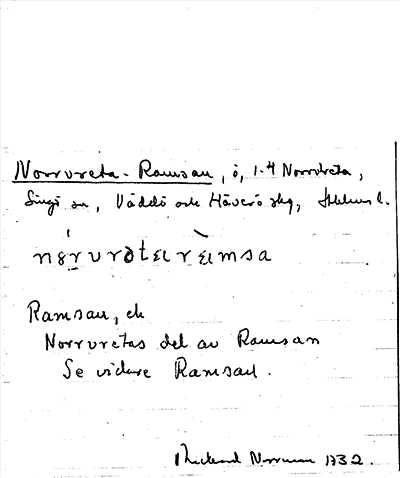 Norrvreta-Ramsan, ö, 1-4 Norrvreta,
Singö sn, Väddö och Häverö skg, Sthlms l.
Ramsan, ek
Norrvretas del av Ramsan
Se vidare Ramsan.
Rickard Norrman 1932.